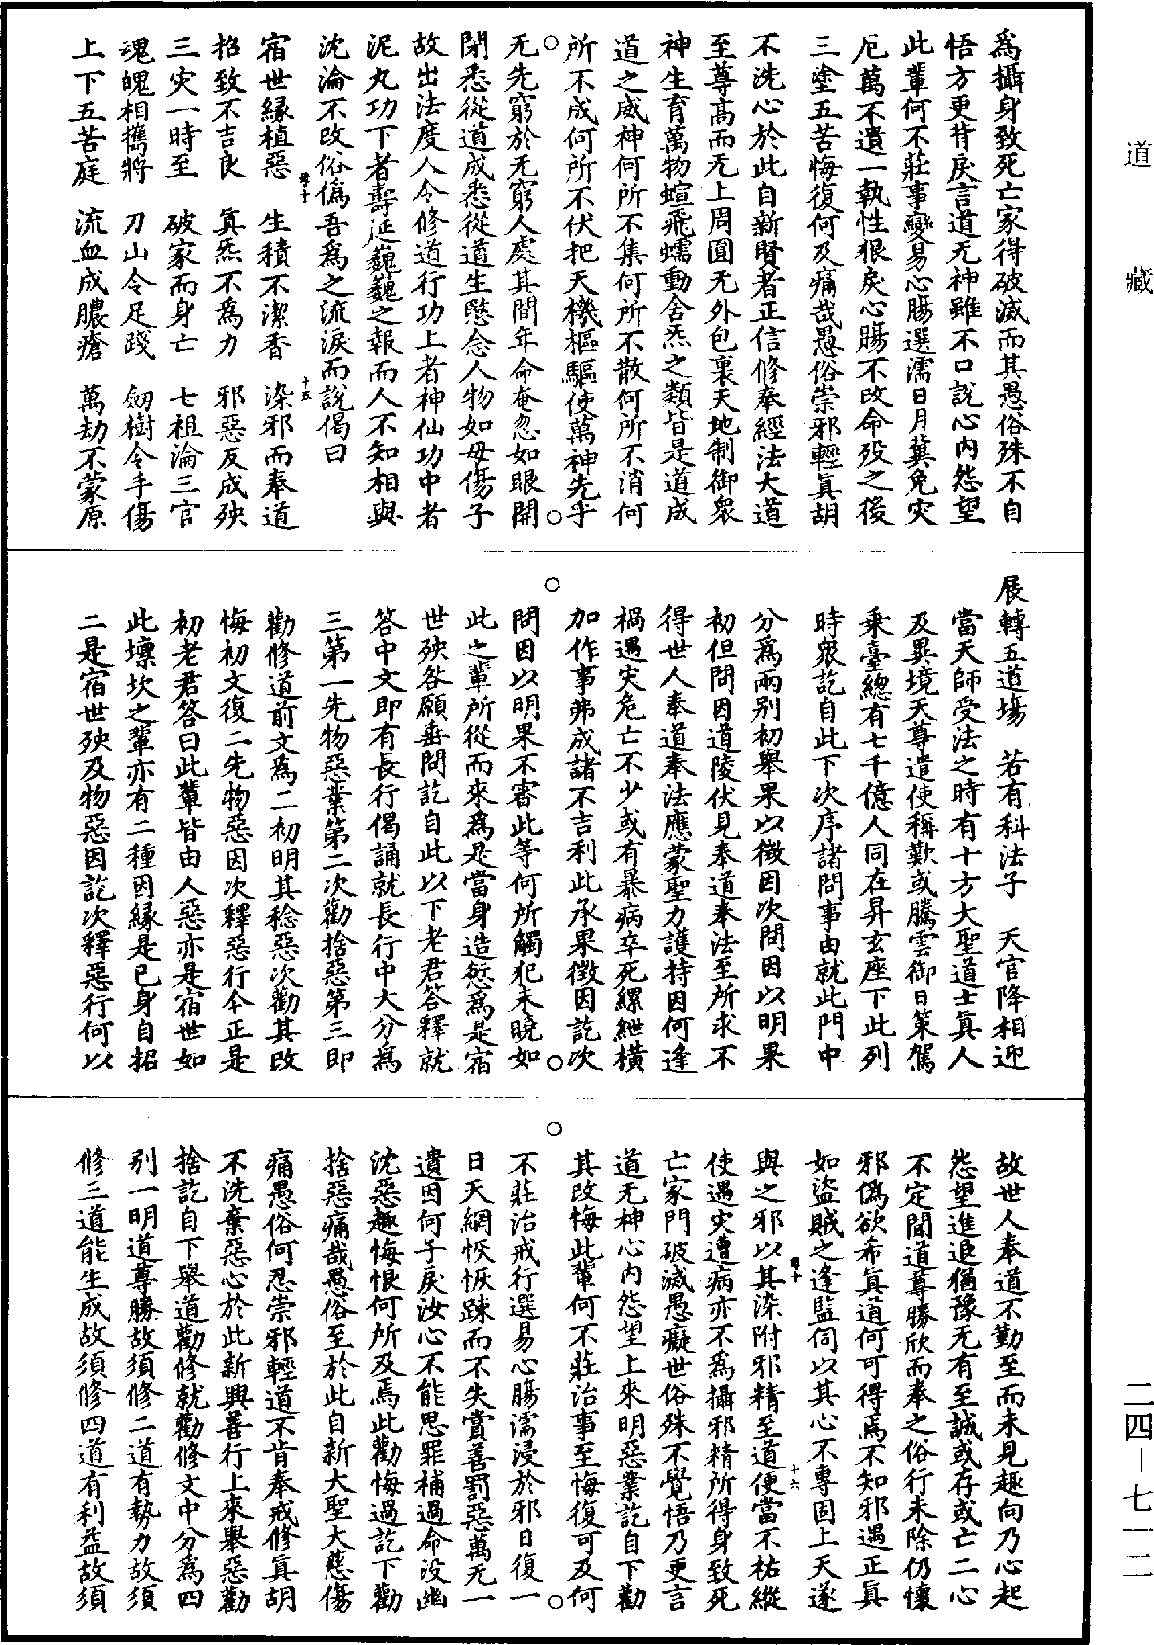 道藏
爲攝身致死亡家得破滅而其愚俗殊不自
悟方更背戾言道无神雖不口說心內怨望
此輩何不莊事變易心腸選濡日月冀免灾
厄萬不遺一執性狠戾心腸不改命歿之後
三塗五苦悔復何及痛哉愚俗崇邪輕眞胡
不洗心於此自新賢者正信修奉經法大道
至尊高而无上周圓无外包裹天地制御衆
神生育萬物蝖飛蠕動含炁之類皆是道成
道之威神何所不集何所不散何所不消何
所不成何所不伏把天機樞驅使萬神先乎
无先窮於无窮人處其間年命奄忽如眼開
閉悉從道成悉從道生愍念人物如母傷子
故出法度人令修道行功上者神仙功中者
泥丸功下者壽延巍巍之報而人不知相與
沈淪不改俗僞吾爲之流淚而說偈曰
宿世緣植惡 生積不潔香 染邪而奉道
招致不吉良 眞炁不爲力 邪惡反成殃
三灾一時至 破家而身亡 七祖淪三官
魂魄相攜將 刀山令足踐 劒樹令手傷
上下五苦庭 流血成膿瘡 萬劫不蒙原
展轉五道場 若有科法子 天官降相迎
當天師受法之時有十方大聖道士眞人
及異境天尊遣使稱歎或騰雲御日策駕
乘臺總有七千億人同在昇玄座下此列
時衆訖自此下次序諸問事由就此門中
分爲兩別初舉果以徵因次問因以明果
初但問因道陵伏見奉道奉法至所求不
得世人奉道奉法應蒙聖力護持因何逢
禍遇灾危亡不少或有暴病卒死縲紲橫
加作事弗成諸不吉利此承果徵因訖次
問因以明果不審此等何所觸犯未曉如
此之輩所從而來爲是當身造愆爲是宿
世殃咎願垂問訖自此以下老君答釋就
答中文即有長行偈誦就長行中大分爲
三第一先物惡業第二次勸捨惡第三即
勸修道前文爲二初明其稔惡次勸其改
悔初文復二先物惡因次釋惡行今正是
初老君答曰此輩皆由人惡亦是宿世如
此壈坎之輩亦有二種因緣是已身自招
二是宿世殃及物惡因訖次釋惡行何以
故世人奉道不勤至而未見趣向乃心起
怨望進退猶豫无有至誠或存或亡二心
不定聞道尊勝欣而奉之俗行未除仍懷
邪僞欲希眞道何可得焉不知邪遇正眞
如盜賊之逢監伺以其心不專固上天遂
與之邪以其染附邪精至道便當不祐縱
使遇灾遭病亦不爲攝邪精所得身致死
亡家門破滅愚癡世俗殊不覺悟乃更言
道无神心內怨望上來明惡業訖自下勸
其改悔此輩何不莊治事至悔復可及何
不莊治戒行選易心腸濡浸於邪日復一
日天網恢恢踈而不失賞善罰惡萬无一
遺因何子戾汝心不能思罪補過命没幽
沈惡趣悔恨何所及焉此勸悔過訖下勸
捨惡痛哉愚俗至於此自新大聖大慈傷
痛愚俗何忍崇邪輕道不肯奉戒修眞胡
不洗棄惡心於此新興善行上來舉惡勸
捨訖自下舉道勸修就勸修文中分爲四
別一明道尊勝故須修二道有勢力故須
修三道能生成故須修四道有利益故須
二四—七一二